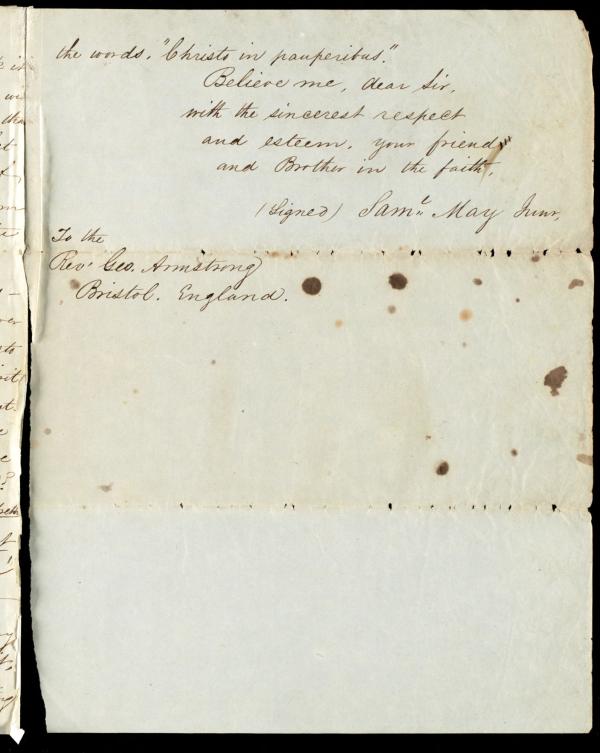 the words, "Christo in pauperibus."
Believe me, dear Sir,
with the sincerest respect
and esteem, your friend
and Brother in the faith,
(Signed) Saml. May Junr,
To the
Revd. Geo. Armstrong
Bristol. England.